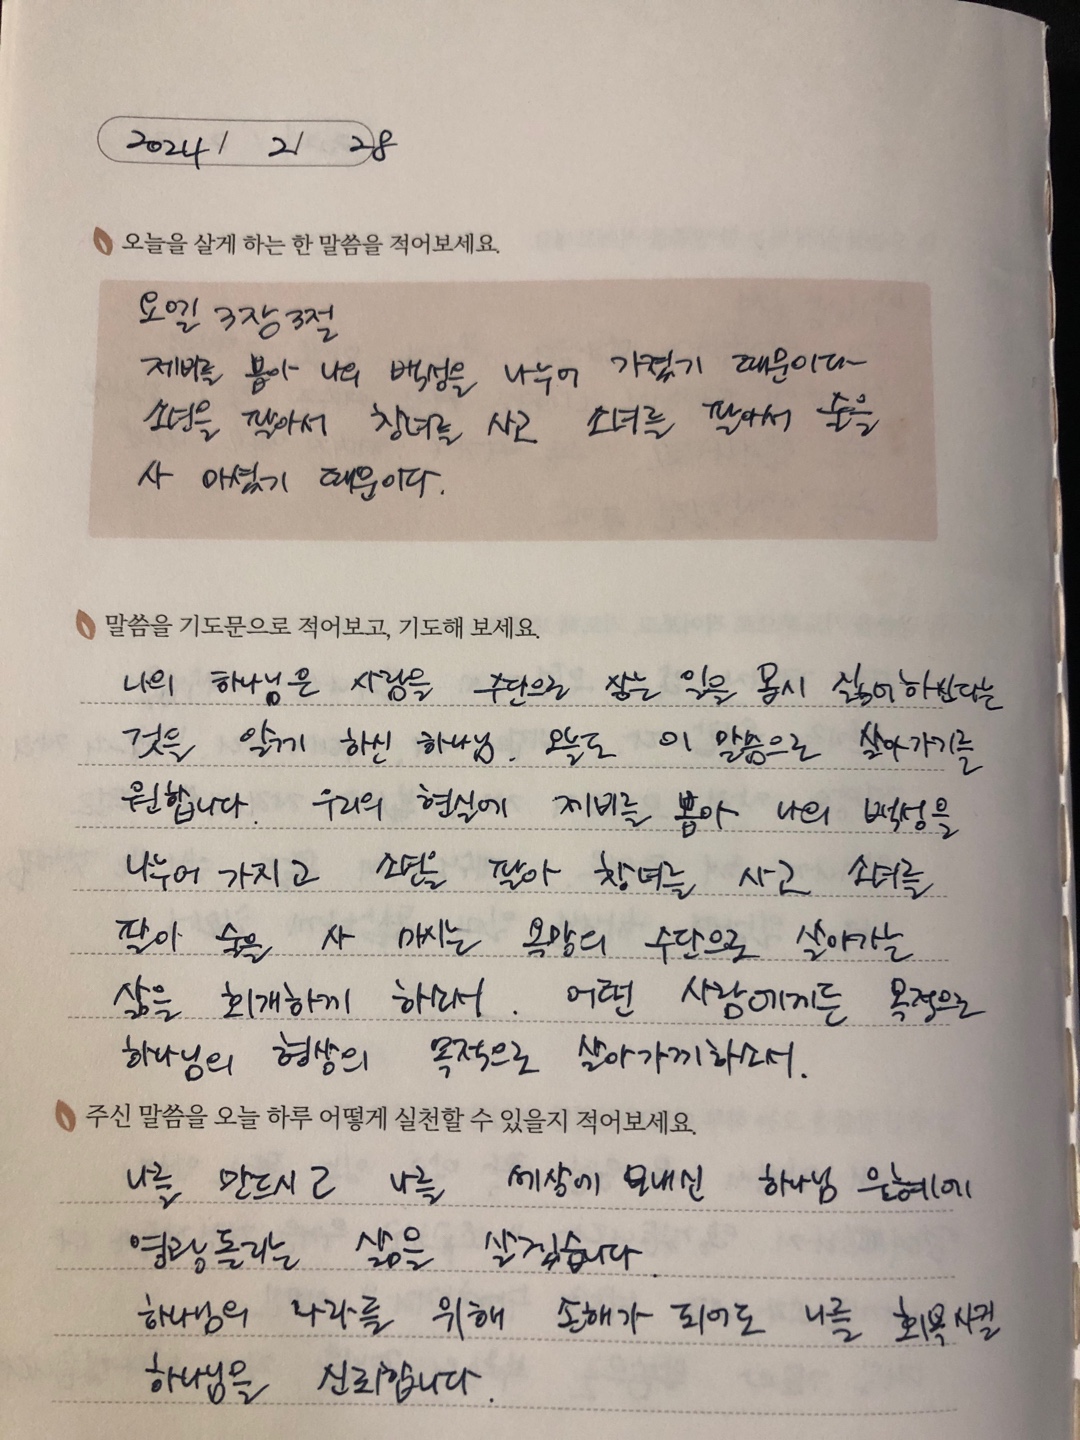 2024/ 2/ 28
오늘을 살게 하는 한 말씀을 적어보세요.
요엘 3장 3절
제비를 뽑아 나의 백성을 나누어 가졌기 때문이다
소년을 팔아서 창녀를 사고 소녀를 팔아서 술을
사 마셨기 때문이다.
말씀을 기도문으로 적어보고, 기도해 보세요.
나의 하나님은 사람을 수단으로 삼는 일을 몹시 싫어하신다는
것을 알게 하신 하나님. 오늘도 이 말씀으로 살아가기를
원합니다. 우리의 현실에 제비를 뽑아 나의 백성을
나누어 가지고 소년을 팔아 창녀를 사고 소녀를
팔아 술을 사 마시는 욕망의 수단으로 살아가는
삶을 회개하게 하소서. 어떤 사람에게든 목적으로
하나님의 형상의 목적으로 살아가게하소서.
주신 말씀을 오늘 하루 어떻게 실천할 수 있을지 적어보세요.
나를 만드시고 나를 세상에 보내신 하나님 은혜에
영광돌리는 삶을 살겠습니다.
하나님의 나라를 위해 손해가 되어도 나를 회복시킬
하나님을 신뢰합니다.